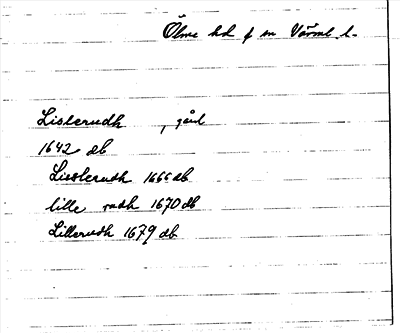 Ölme hd f sn Värml. l.
Lislerudh , gård
1642 db
Lisslerudh 1666 db
lille rudh 1670 db
Lillerudh 1679 db